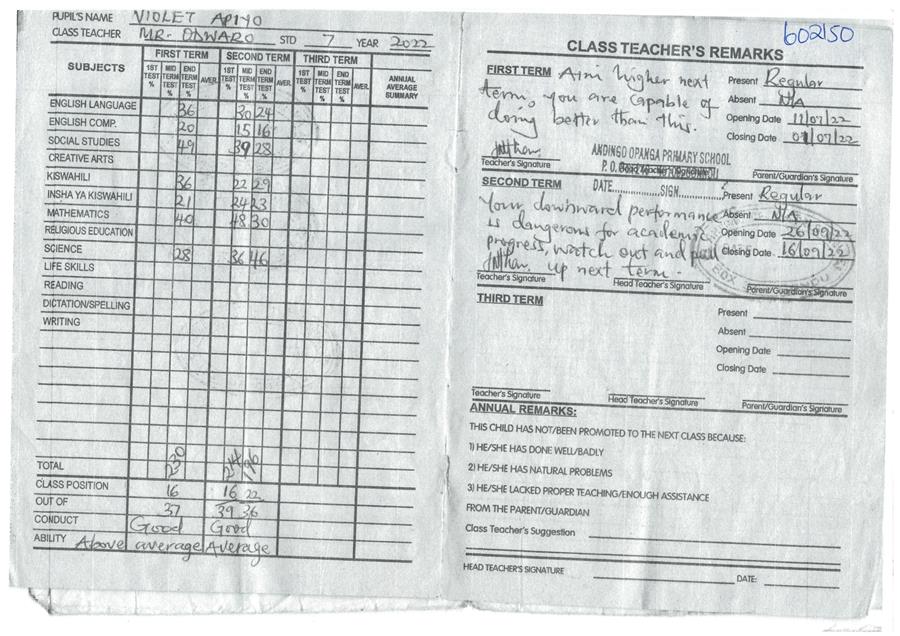 PUPIL'S NAME VIOLET APIYO
CLASS TEACHER MR. ODWARO STD 7 YEAR 2022
SUBJECTS FIRST TERM SECOND TERM THIRD TERM ANNUAL AVERAGE SUMMARY
1ST TEST % MID TERM TEST % END TERM TEST % AVER. 1ST TEST % MID TERM TEST % END TERM TEST % AVER. 1ST TEST % MID TERM TEST % END TERM TEST % AVER.
ENGLISH LANGUAGE 36 30 24
ENGLISH COMP. 20 15 16
SOCIAL STUDIES 49 39 28
CREATIVE ARTS
KISWAHILI 36 22 29
INSHA YA KISWAHILI 21 24 23
MATHEMATICS 40 48 30
RELIGIOUS EDUCATION
SCIENCE 28 36 46
LIFE SKILLS
READING
DICTATION/SPELLING
WRITING
TOTAL 230 214 196
CLASS POSITION 16 16 22
OUT OF 37 39 36
CONDUCT Good Good
ABILITY Above average Average
602150
CLASS TEACHER'S REMARKS
FIRST TERM Aim higher next
term, you are capable of
doing better than this.
Present Regular
Absent N/A
Opening Date 11/07/22
Closing Date 01/07/22
ANDINGO OPANGA PRIMARY SCHOOL
P. O.
Teacher's Signature Parent/Guardian's Signature
DATE SIGN
SECOND TERM
Your downward performance
is dangerous for academic
progress, watch out and pull
up next term.
Present Regular
Absent N/A
Opening Date 26/09/22
Closing Date 16/09/22
Teacher's Signature Head Teacher's Signature Parent/Guardian's Signature
THIRD TERM
Present
Absent
Opening Date
Closing Date
Teacher's Signature Head Teacher's Signature Parent/Guardian's Signature
ANNUAL REMARKS:
THIS CHILD HAS NOT/BEEN PROMOTED TO THE NEXT CLASS BECAUSE:
1) HE/SHE HAS DONE WELL/BADLY
2) HE/SHE HAS NATURAL PROBLEMS
3) HE/SHE LACKED PROPER TEACHING/ENOUGH ASSISTANCE
FROM THE PARENT/GUARDIAN
Class Teacher's Suggestion
HEAD TEACHER'S SIGNATURE DATE: